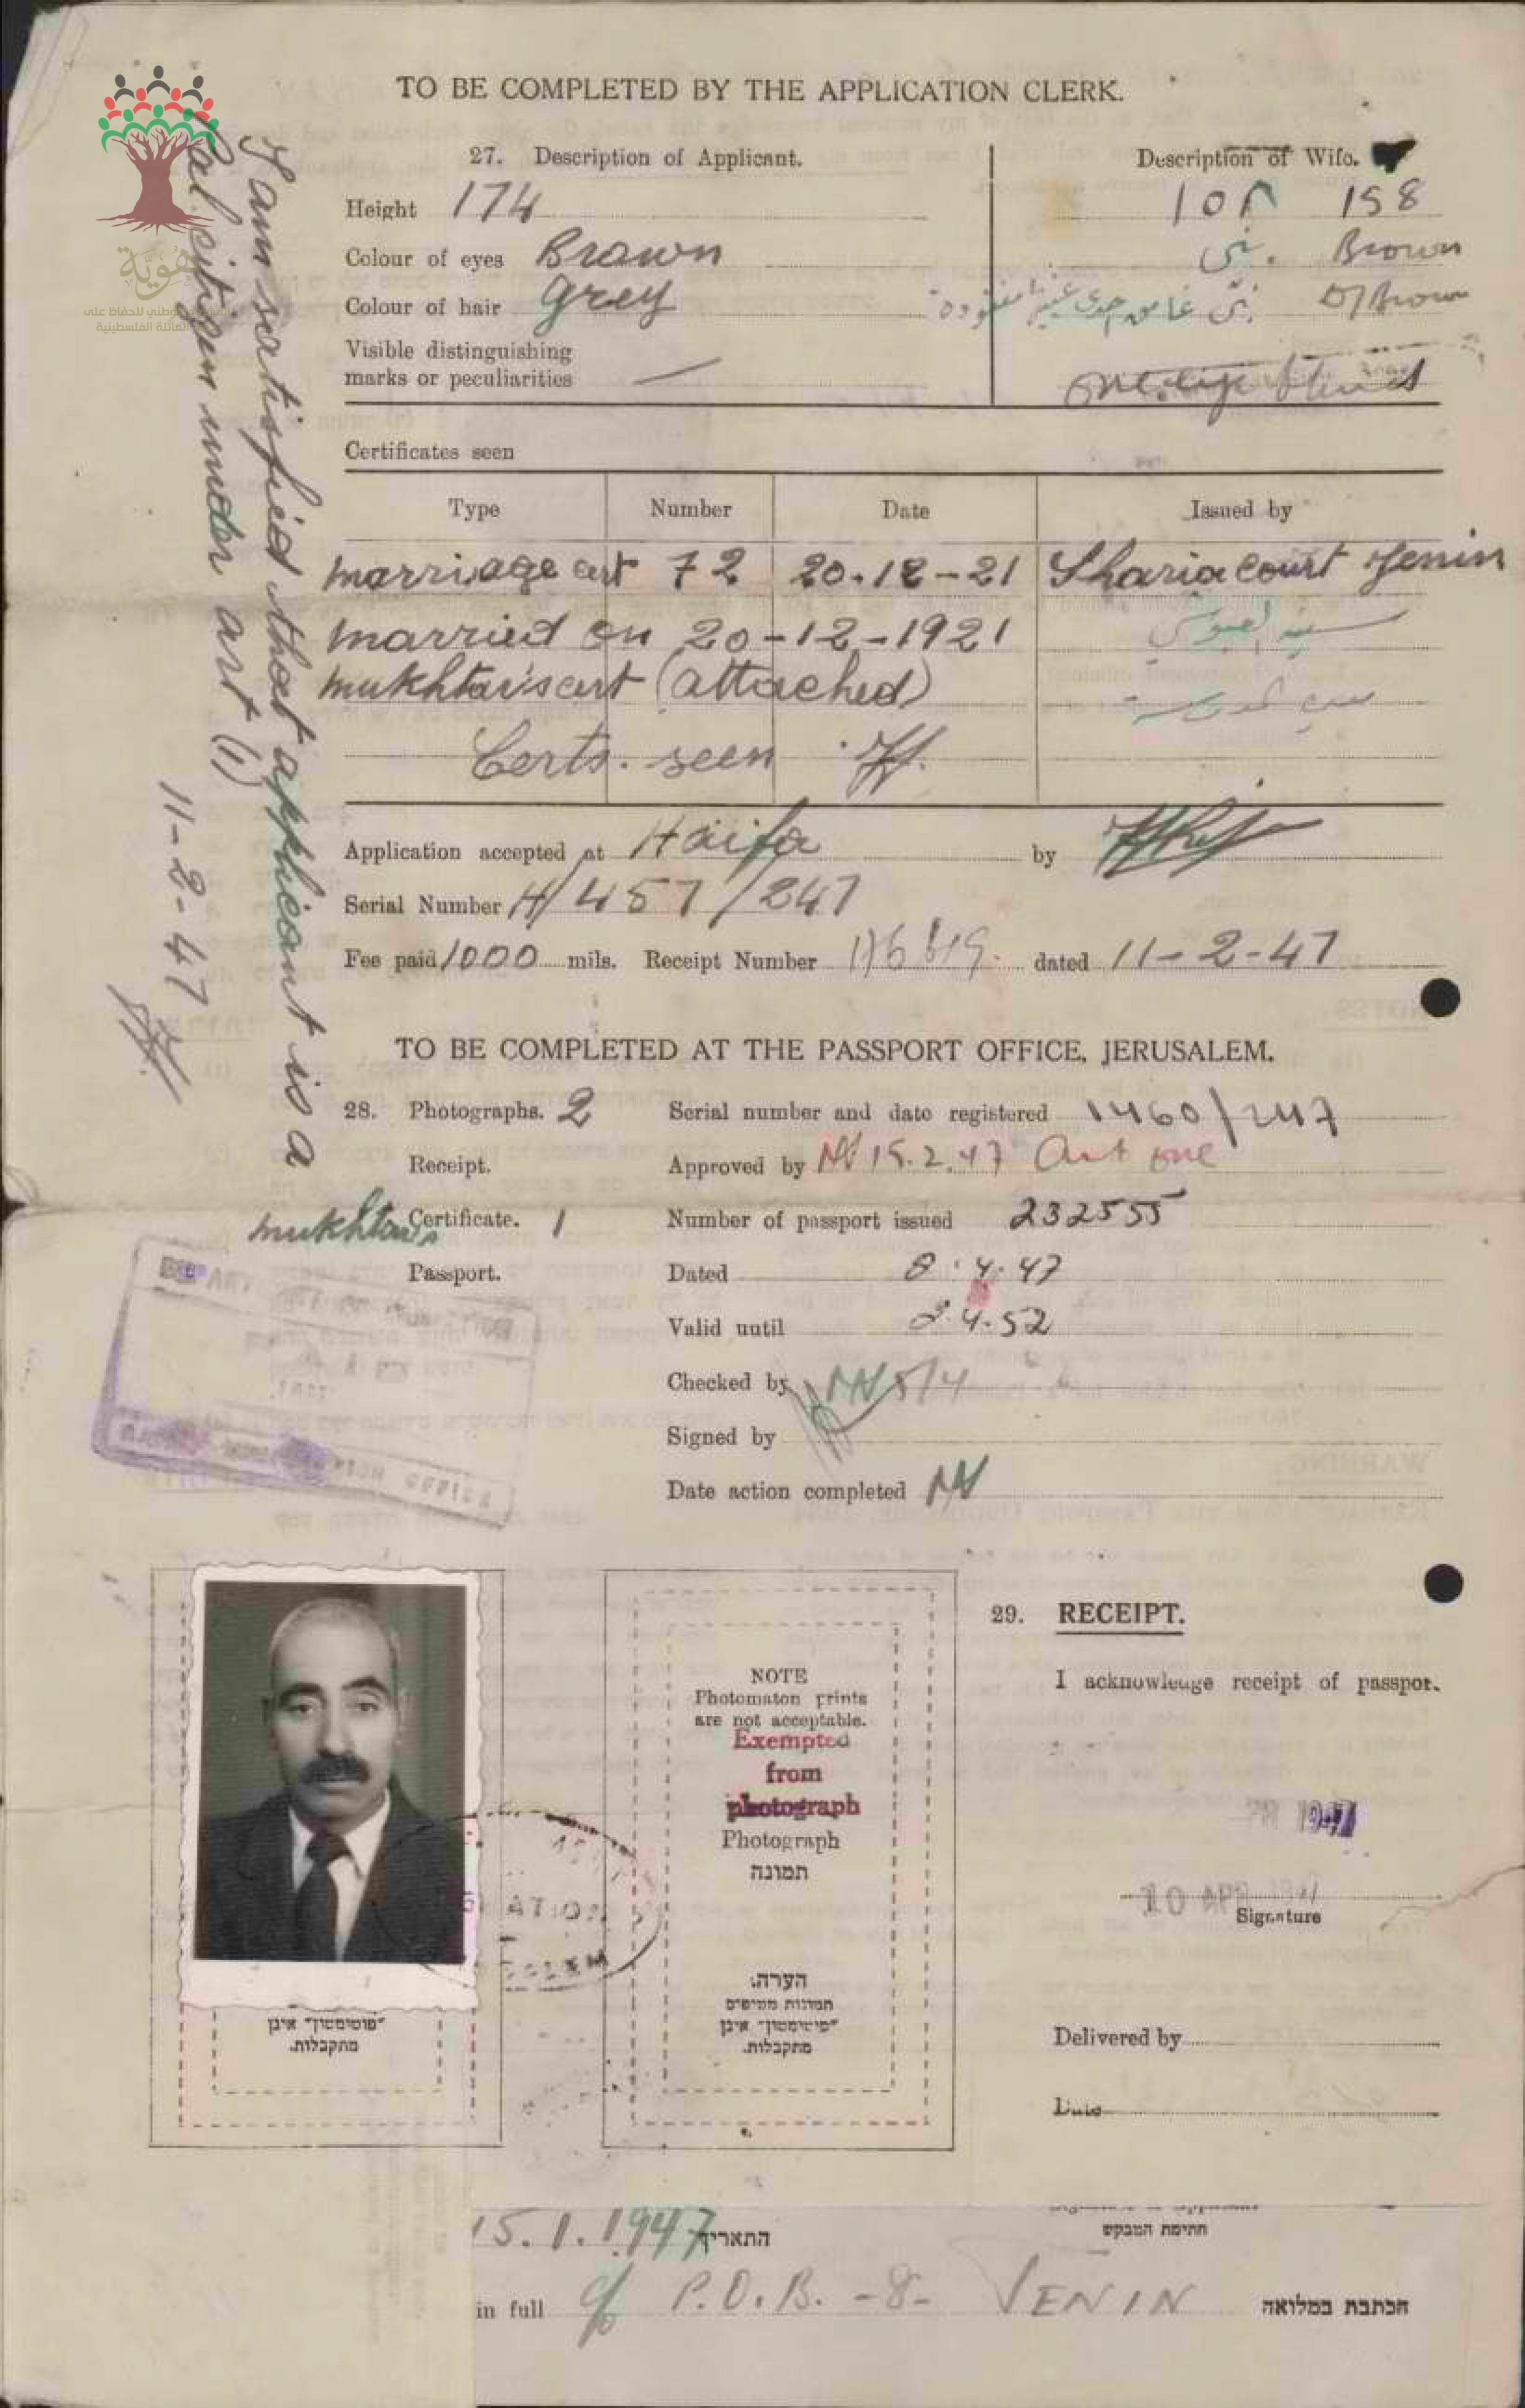 TO BE COMPLETED BY THE APPLICATION CLERK.
27. Description of Applicant.
Description of Wife.
Height 174
١٥٨ 158
Colour of eyes Brown
بني Brown
Colour of hair Grey
بني غامق احدى عينيها مفقودة D/Brown
Visible distinguishing
marks or peculiarities —
one eye
Certificates seen
Type Number Date Issued by
marriage cert 72 20-12-21 Sharia court Jenin
married on 20-12-1921
mukhtar's cert (attached)
Certs. seen
Application accepted at Haifa by
Serial Number H/457/247
Fee paid 1000 mils. Receipt Number dated 11-2-47
I am satisfied that applicant is a
Pal. citizen under art (1)
11-2-47
هوية
للحفاظ على
العائلة الفلسطينية
TO BE COMPLETED AT THE PASSPORT OFFICE, JERUSALEM.
28. Photographs. 2 Serial number and date registered 1460/247
Receipt. Approved by 15.2.47 Art one
mukhtar's Certificate. 1 Number of passport issued 232555
Passport. Dated 8.4.47
Valid until 4.52
Checked by 5/4
Signed by
Date action completed
NOTE
Photomaton prints
are not acceptable.
Exempted
from
photograph
Photograph
תמונה
הערה:
תמונות מטיפוס
"פוטומטון" אינן
מתקבלות.
"פוטומטון" אינן
מתקבלות.
29. RECEIPT.
I acknowledge receipt of passport.
1947
10 APR 1947
Signature
Delivered by
Date
15.1.1947 התאריך
חתימת המבקש
in full c/o P.O.B. -8- JENIN הכתבת במלואה